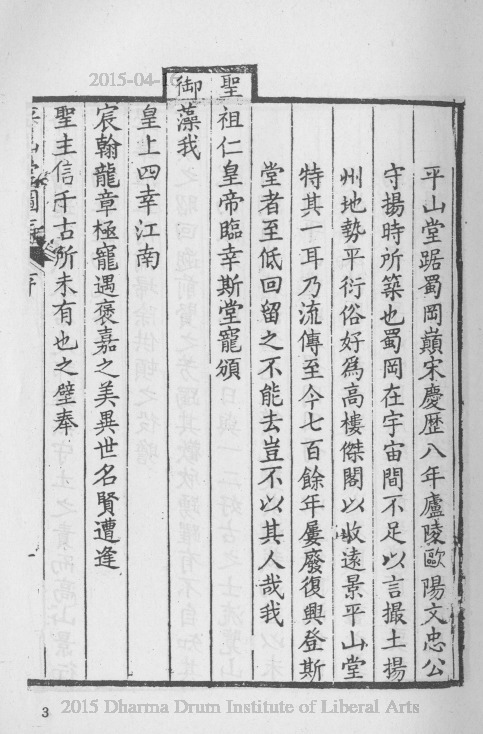 平山堂踞蜀岡巔宋慶歷八年廬陵歐陽文忠公
守揚時所築也蜀岡在宇宙間不足以言撮土揚
州地勢平衍俗好為高樓傑閣以收遠景平山堂
特其一耳乃流傳至今七百餘年屢廢復興登斯
堂者至低回留之不能去豈不以其人哉我
聖祖仁皇帝臨幸斯堂寵頒
御藻我
皇上四幸江南
宸翰龍章極寵遇褒嘉之美異世名賢遭逢
聖主信千古所未有也之壁奉
平山堂圖
序
2015-04-16
3
2015 Dharma Drum Institute of Liberal Arts